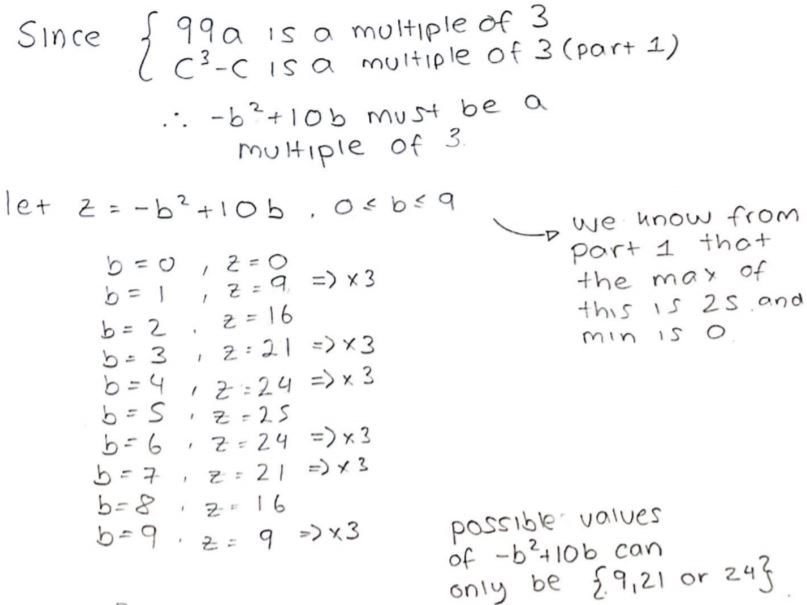 Since { 99a is a multiple of 3
c³-c is a multiple of 3 (part 1)
∴ -b²+10b must be a
multiple of 3.
let z = -b²+10b , 0 ≤ b ≤ 9
we know from
part 1 that
the max of
this is 25 and
min is 0
b = 0 , z = 0
b = 1 , z = 9 => x3
b = 2 , z = 16
b = 3 , z = 21 => x3
b = 4 , z = 24 => x3
b = 5 , z = 25
b = 6 , z = 24 => x3
b = 7 , z = 21 => x3
b = 8 , z = 16
b = 9 , z = 9 => x3
possible values
of -b²+10b can
only be {9,21 or 24}.